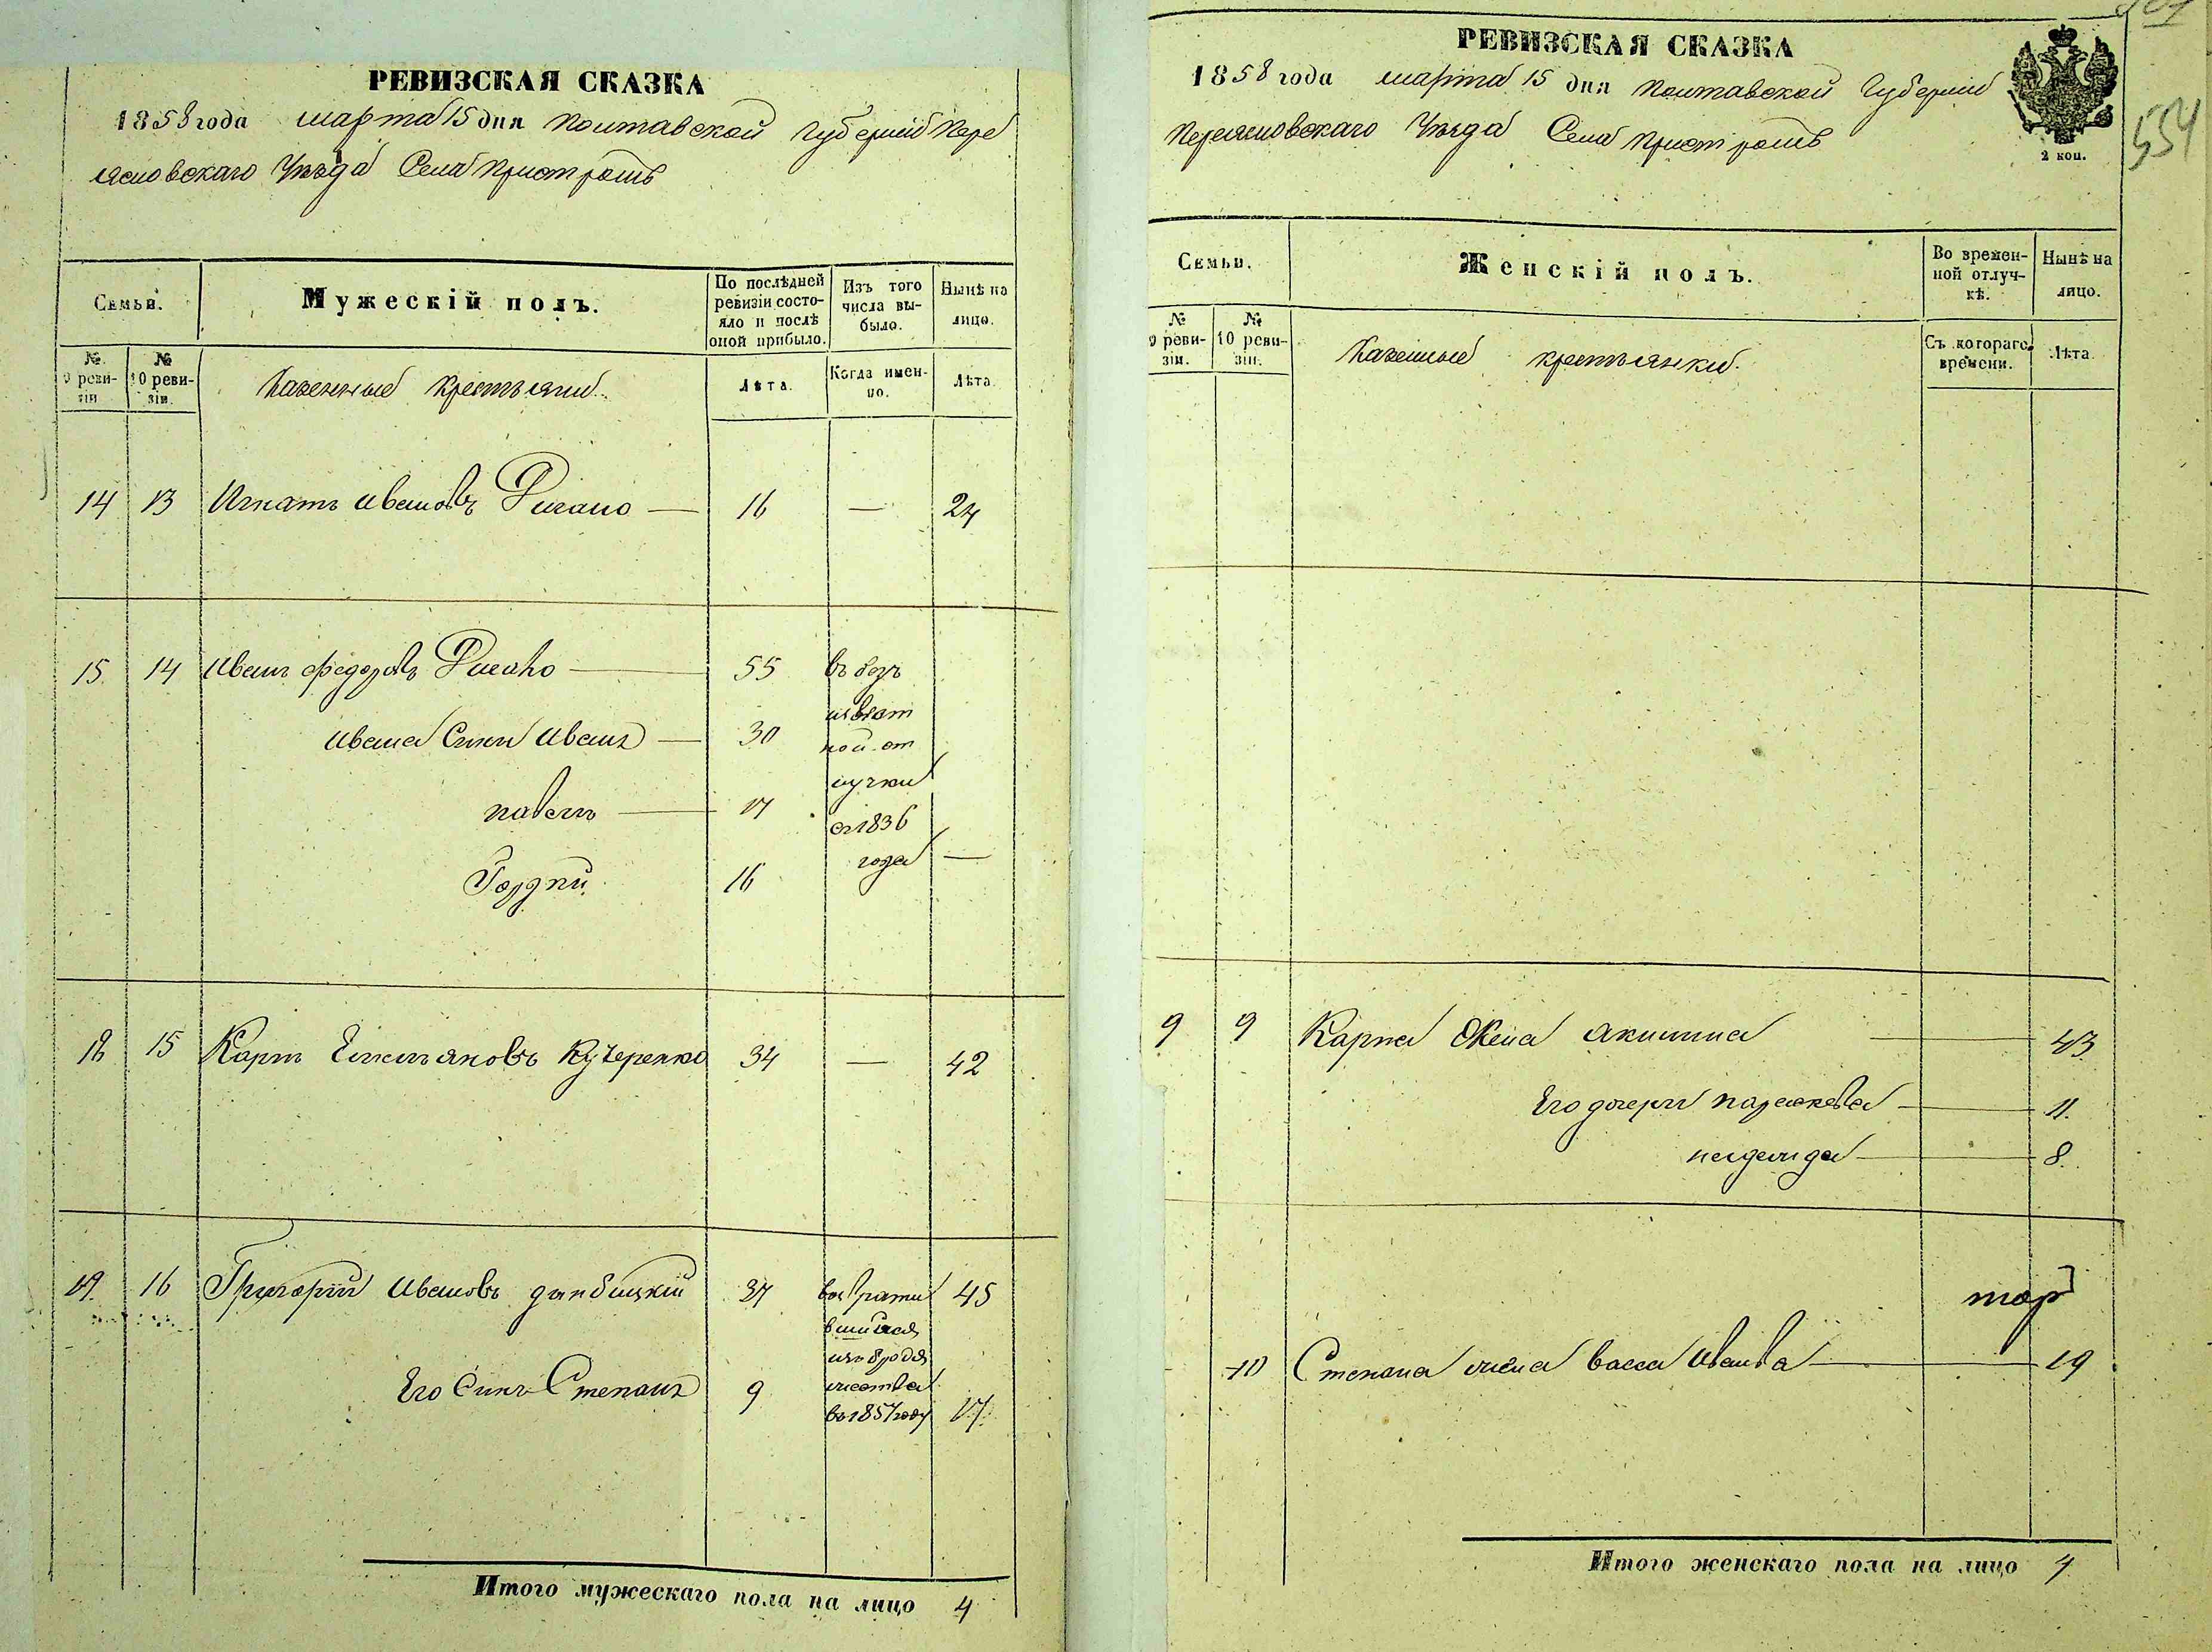 РЕВИЗСКАЯ СКАЗКА
1858 года марта 15 дня Полтавской Губернии Пере
яславскаго Уѣзда Села Пристромъ
Семьи.
Мужескій полъ.
По послѣдней ревизіи состояло и послѣ оной прибыло.
Изъ того числа выбыло.
Нынѣ на лицо.
№ 9 ревизіи
№ 10 ревизіи.
Казенные Крестьяни
Лѣта.
Когда именно.
Лѣта.
14 13 Игнатъ Ивановъ — 16 — 24
15 14 Иванъ Федоровъ — 55 въ безъ
извѣст
Ивана Сыни Иванъ — 30 ной от
лучки
Павелъ — 17 съ 1836
года —
Гордѣй 16
15 Карпъ Емельяновъ Кучеренко 34 — 42
16 Григорій Ивановъ 37 возврати 45
вшийся
изъ бродя
жества
Его Сынъ Степанъ 9 въ 1857 году 17
Итого мужескаго пола на лицо 4
РЕВИЗСКАЯ СКАЗКА
1858 года марта 15 дня Полтавской Губерніи
Переясловскаго Уѣзда Села Пристромъ
2 коп.
554
Семьи.
Женскій полъ.
Во временной отлучкѣ.
Нынѣ на лицо.
№ 9 ревизіи.
№ 10 ревизіи.
Казенные крестьянки.
Съ котораго времени.
Лѣта.
9 9 Карпа Жена Акилина — 43
Его дочери Параскева — 11.
— 8.
10 Степана жена Васса Иванова — 19
Итого женскаго пола на лицо 4